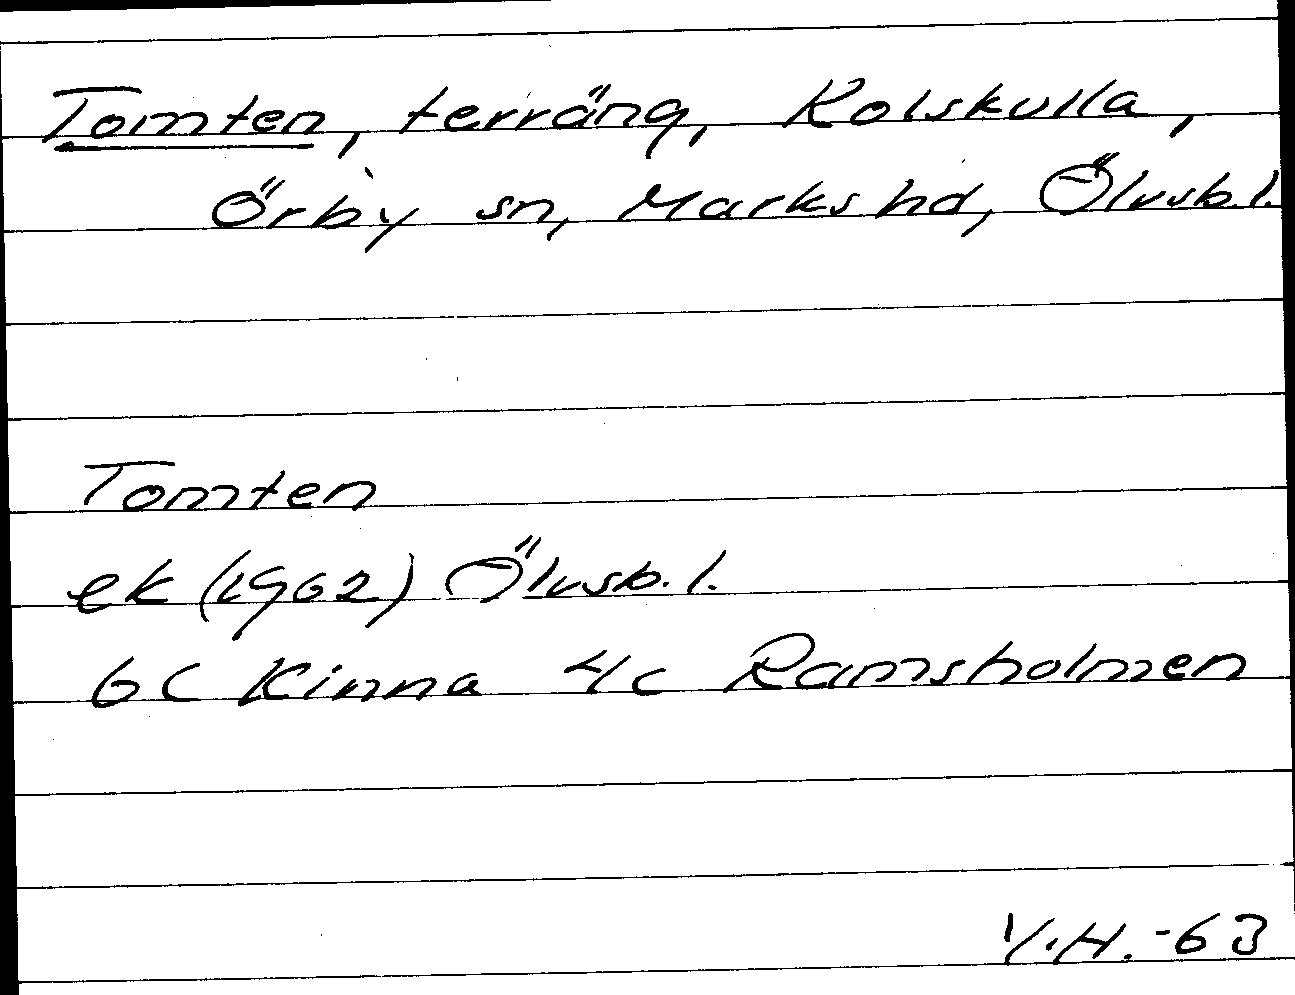 Tomten, terräng, Kolskulla,
Örby sn, Marks hd, Älvsb.l.
Tomten
ek (1962) Älvsb.l.
6C Kinna 4c Ramsholmen
V.H.-63